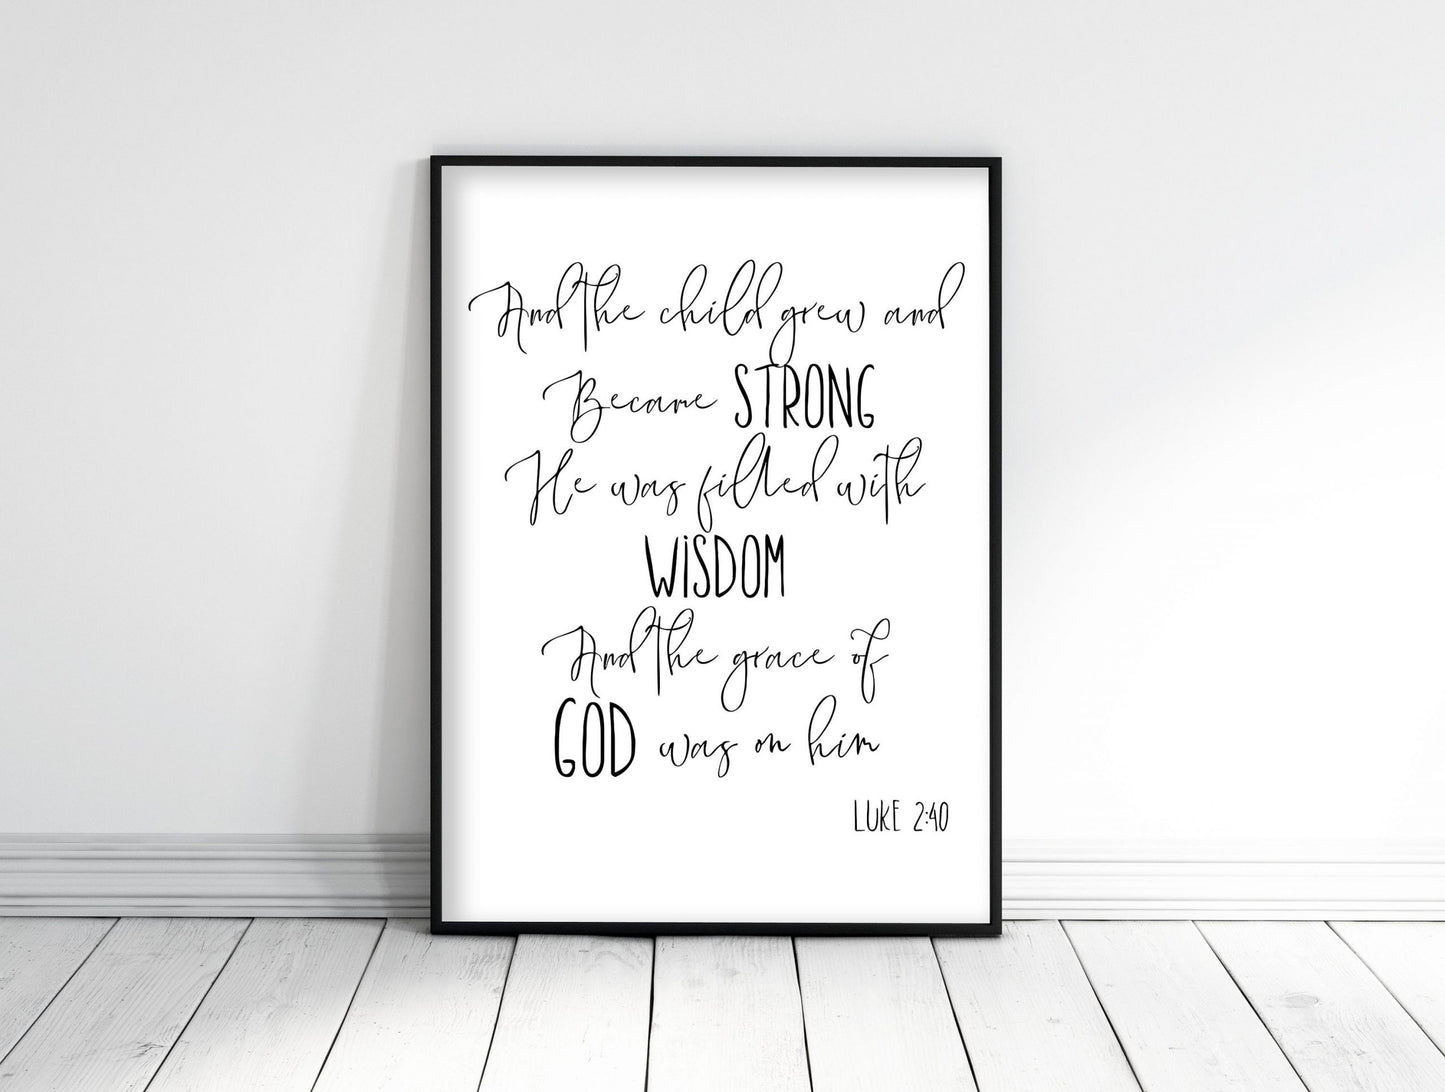 And the child grew and
Became STRONG
He was filled with
WiSDOM
And the grace of
GOD was on him
LUKE 2:40